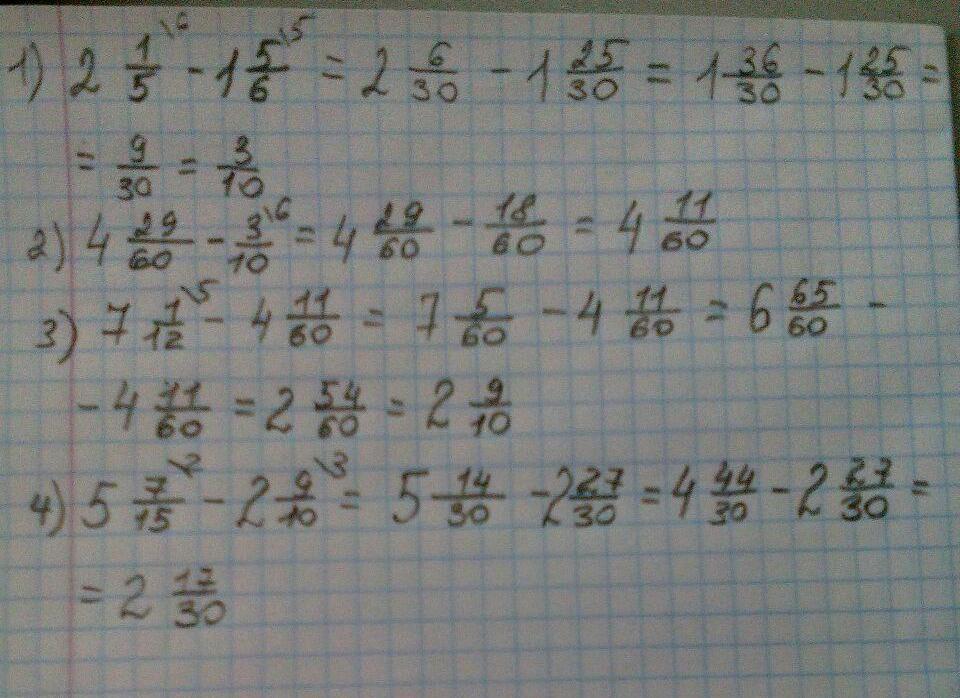 1) 2 1/5 \6 - 1 5/6 \5 = 2 6/30 - 1 25/30 = 1 36/30 - 1 25/30 =
= 9/30 = 3/10
2) 4 29/60 - 3/10 \6 = 4 29/60 - 18/60 = 4 11/60
3) 7 1/12 \5 - 4 11/60 = 7 5/60 - 4 11/60 = 6 65/60 -
- 4 11/60 = 2 54/60 = 2 9/10
4) 5 7/15 \2 - 2 9/10 \3 = 5 14/30 - 2 27/30 = 4 44/30 - 2 27/30 =
= 2 17/30